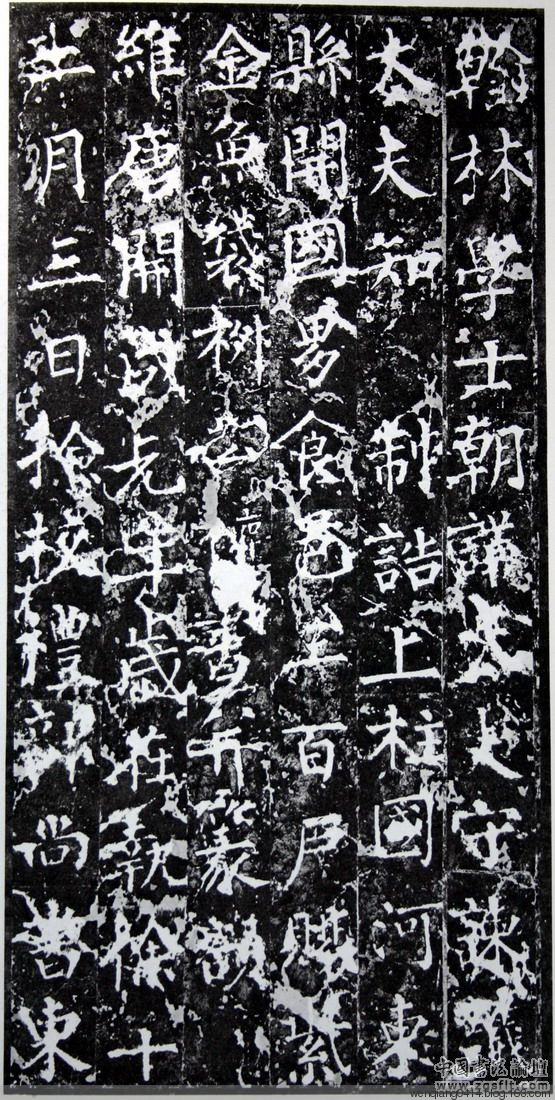 翰林學士朝議大夫守諫議
大夫知制誥上柱國河東
縣開國男食邑三百戶賜紫
金魚袋柳公書并篆額
維唐開成元年歲在執徐十
二月三日檢校禮部尚書東
中国书法論壇
www.zgsflt.com
wenqiang5414.blog.163.com